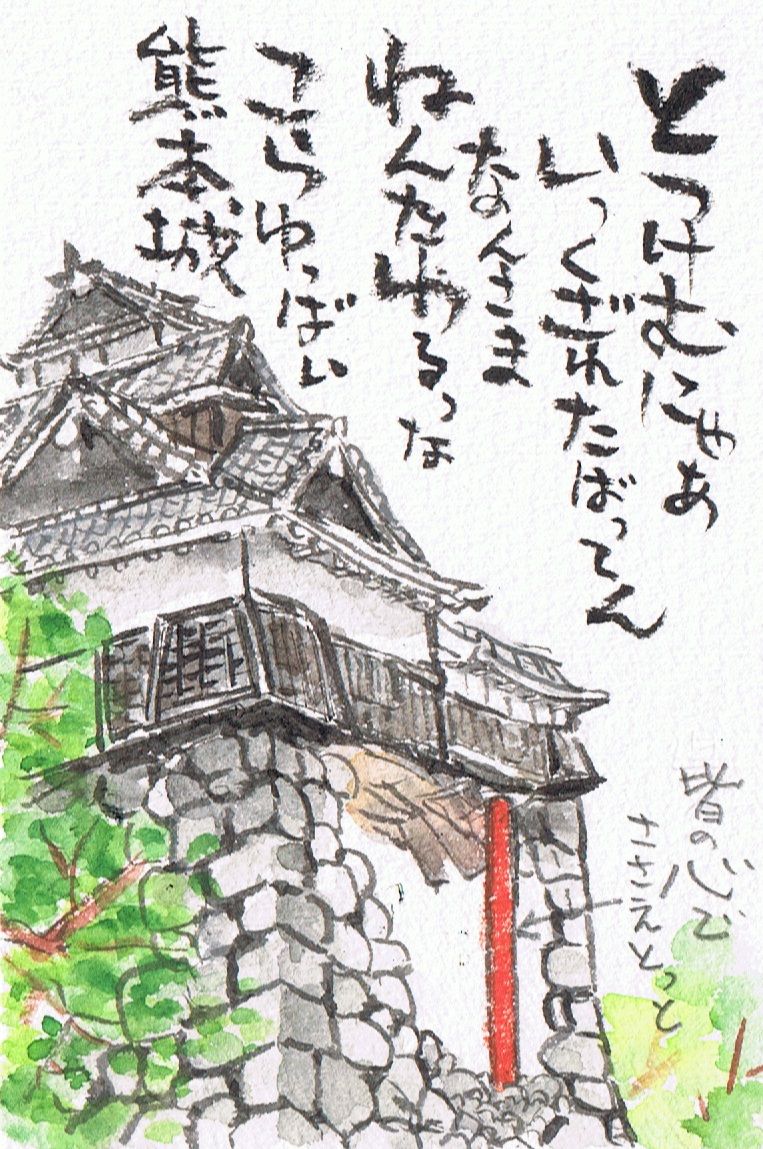 とつけむにゃあ
いっくずれたばってん
なんさま
こらゆっばい
熊本城
皆の心で
ささえとっと